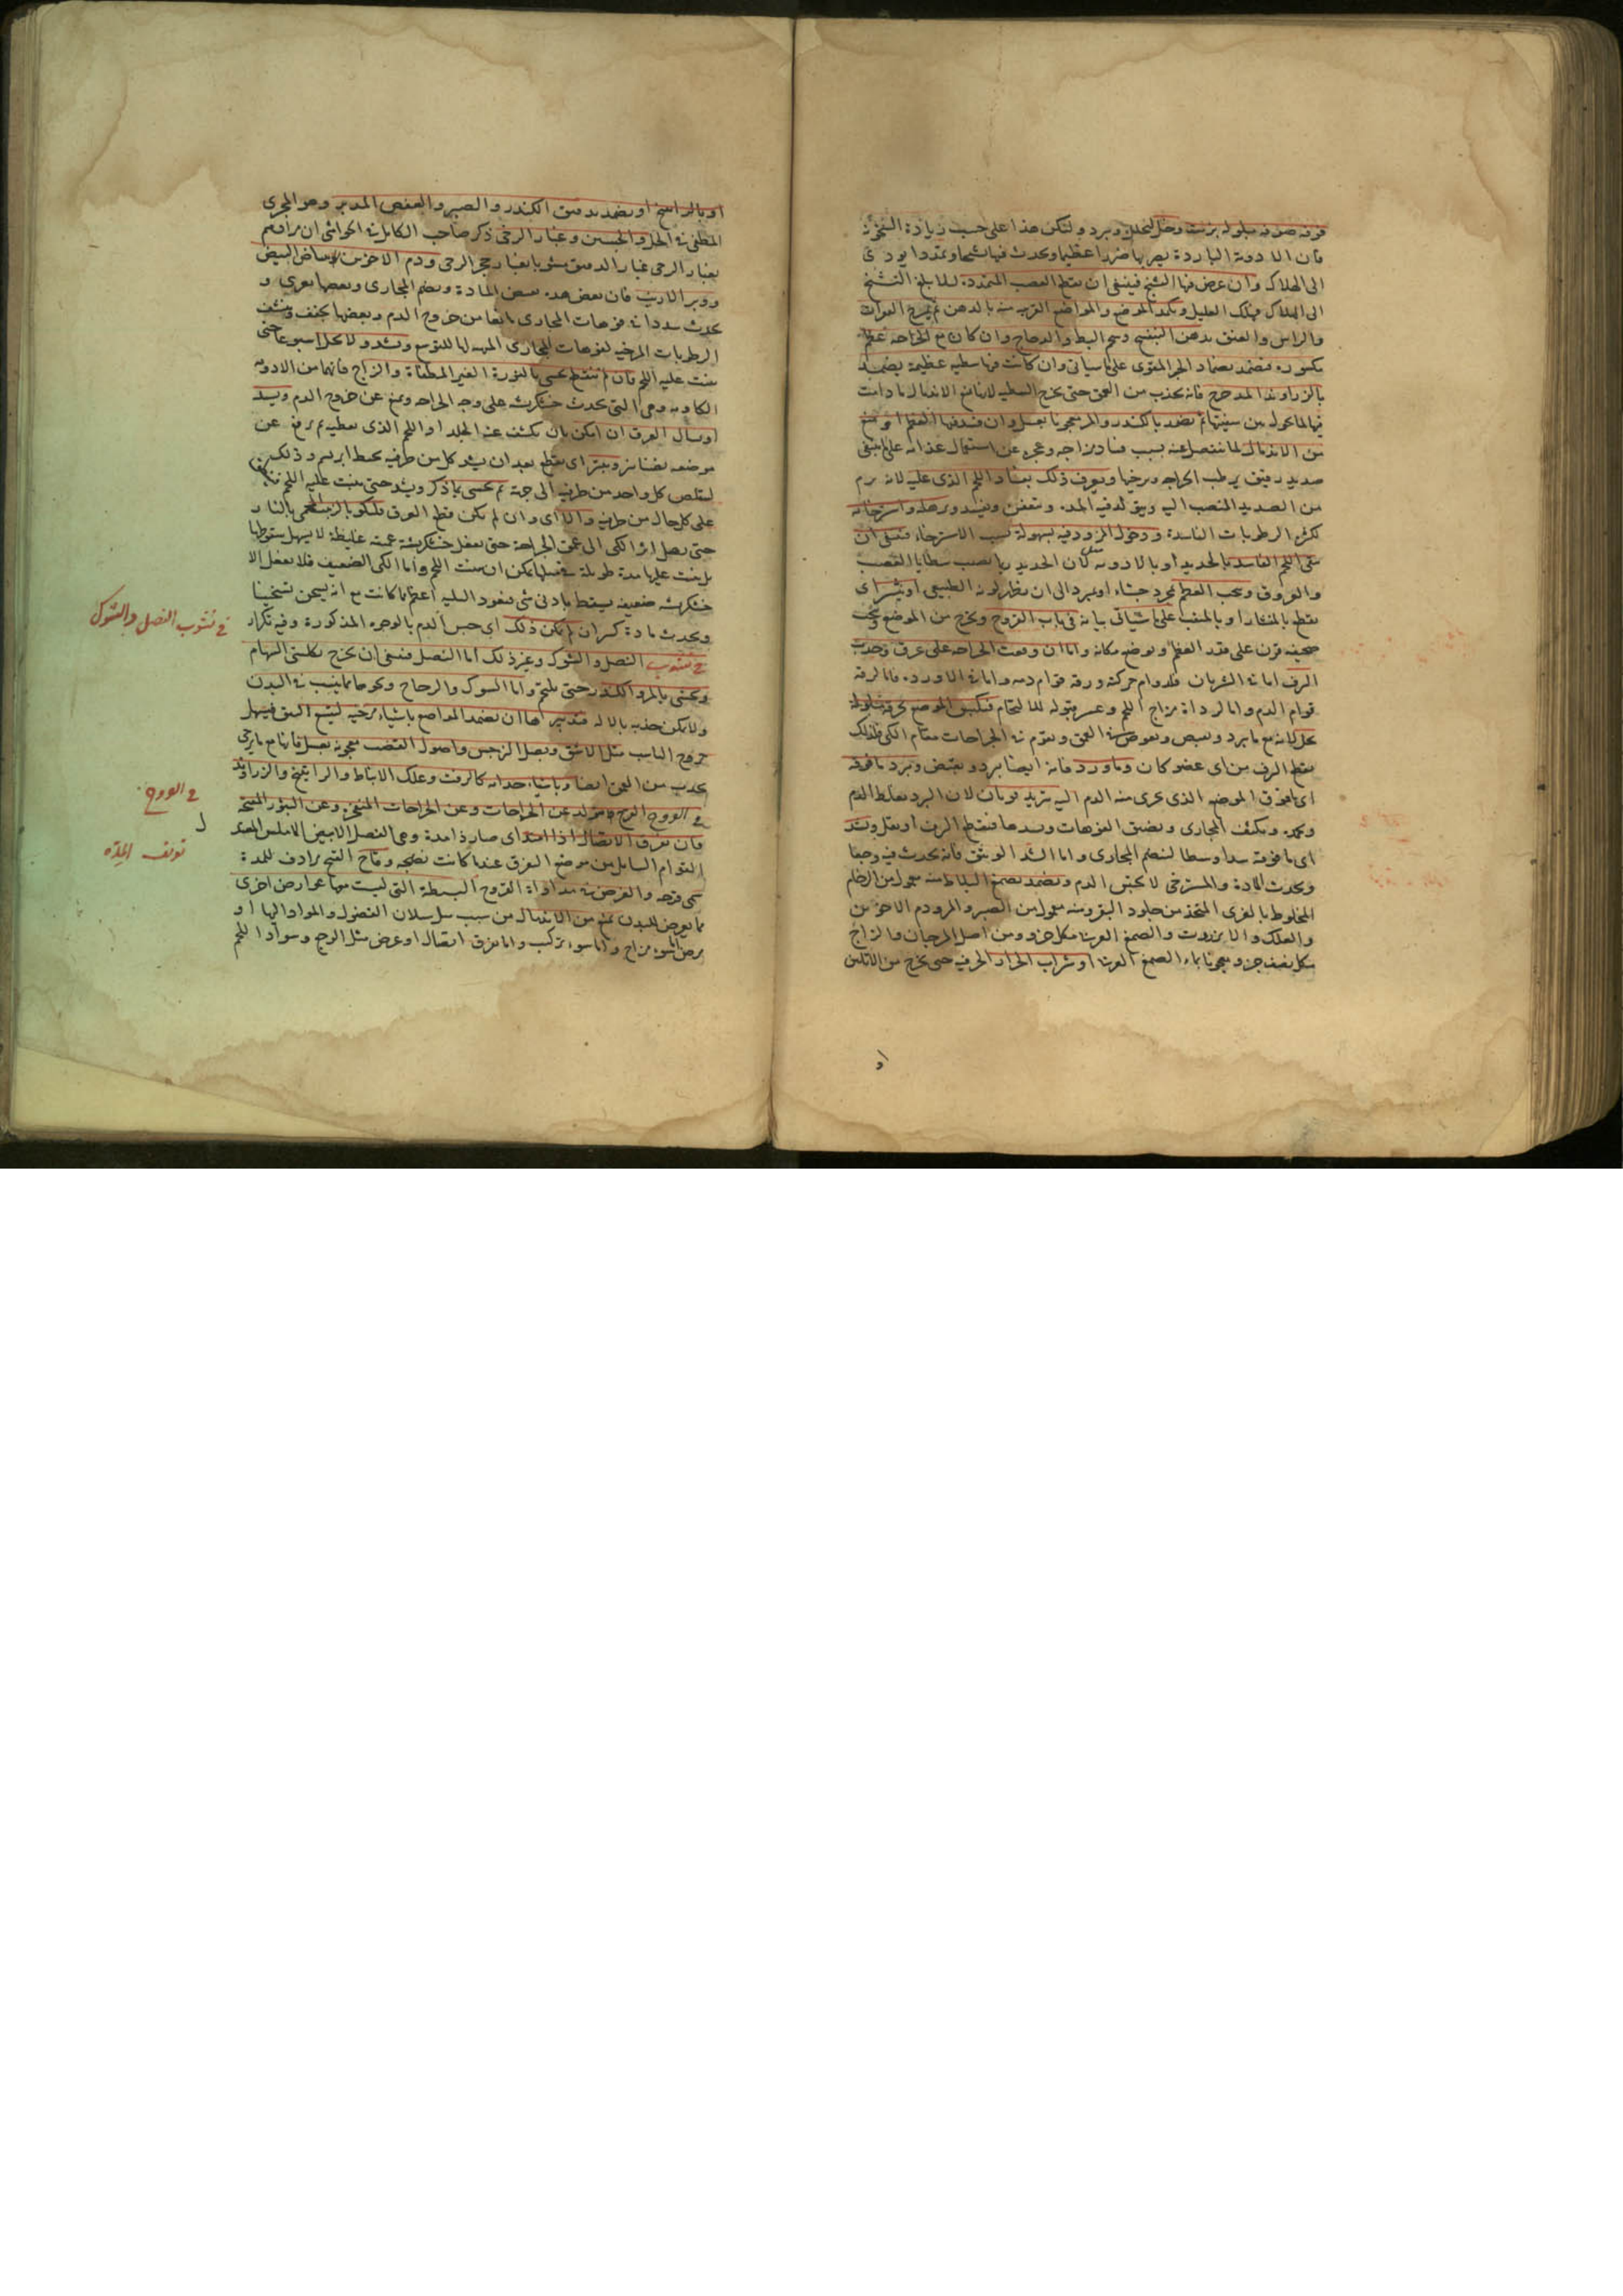 فوقه صوفة مبلولة بزيت وخل لتحلل وتبرد ولتكن هذا على حسب زيادة التحرز
فان الادوية الباردة يضر بها ضررا عظيما ويحدث فيها تشنجا وتمددا يودى
الى الهلاك وان عرض فيها التشنج فينبغى ان يقطع العصب المتمدد لئلا يبلغ التشنج
الى الهلاك فيهلك العليل وتكمد الموضع والمواضع القريبة منه بالدهن ثم يمرخ الفقرات
والراس والعنق بدهن البنفسج وشحم البط والدجاج وان كان مع الجراحة عظم
مكسور فيضمد بضماد الجبر المقوى على ما سياتى وان كانت فيها شظية عظيمة يضمد
بالزراوند المدحرج فانه يجذب من العمق حتى يخرج الشظية لانها تمنع الاندمال ما دامت
فيها ثم يضمد بالكندر والمر معجونا بعسل وان فسد فيها العظم
من الاندمال لما ينفصل عنه بسبب فساد مزاجه وعجزه عن استعمال غذائه على ما ينبغى
صديد رقيق يرطب الجراحة ويرخيها ويعرف ذلك بفساد اللحم الذى عليه لانه يرم
من الصديد المنصب اليه ويتولد فيه المدة ويتعفن ويفسد وبرهله واسترخائه
لكثرة الرطوبات الفاسدة ودخول المرود فيه بسهولة بسبب الاسترخاء فينبغى ان
ينقى اللحم الفاسد بالحديد او بالادوية فان الحديد ربما يصيب شظايا العصب
والعروق ويحك العظم بمجرد خشاء او مبرد الى ان يظهر لونه الطبيعى او ينشر اى
يقطع بالمنشار او بالمثقب على ما سياتى بيانه فى باب القروح ويخرج من الموضع
صحيفة قرن على قدر العظم ويوضع مكانه واما ان وقعت الجراحة على عرق وحدث
النزف اما فى الشريان فلدوام حركته ورقة قوام دمه واما فى الاوردة فاما لرقة
قوام الدم واما لرداءة مزاج اللحم وعسر قبوله للالتحام فيكبس الموضع بخرقة مبلولة
بخل فانه مع ما يبرد ويقبض ويغوص فى العمق ويقوم فى الجراحات مقام الكى فلذلك
يقطع النزف من اى عضو كان وماورد فانه ايضا يبرد ويقبض ويبرد ما فوقه
اى ما فوق الموضع الذى يجرى منه الدم اليه بتبريد قوى فان البرد يغلظ الدم
ويجمده ويكثف المجارى ويضيق الفوهات ويسدها فينقطع النزف او يقل ويشد
اى ما فوقه شدا وسطا لينضم المجارى واما الشد الوثيق فانه يحدث فيه وجعا
ويجذب المادة والمسترخى لا يحبس الدم ويضمد بصمغ البلاط فانه معمول من الرخام
المخلوط بالغرى المتخذ من جلود البقر ومنه معمول من الصبر والمر ودم الاخوين
والعلك والانزروت والصمغ العربى من كل جزو ومن اصل المرجان والزاج
من كل نصف جزو معجونا بماء الصمغ العربى او شراب الحرف حتى يخرج من الاتلس
او
او بالراسخ او يضمد بدقيق الكندر والصبر والعفص المدبر وهو المحرق
المطفى فى الخل والجبسين وغبار الرحى ذكر صاحب الكامل فى الحواشى ان مرادهم
بغبار الرحى غبار الدقيق مشوبا بغبار حجر الرحى ودم الاخوين وبياض البيض
ووبر الارنب فان بعض هذه يقبض المادة ويضم المجارى وبعضها يغرى و
يحدث سددا فى فوهات المجارى مانعا من خروج الدم وبعضها يجفف وينشف
الرطوبات المرخية لفوهات المجارى المهيئة لها للتوسع ويشد ولا يحل اسبوعا حتى
ينبت عليه اللحم فان لم ينقطع يحشى بالنورة الغير المطفاة والزاج فانهما من الادوية
الكاوية وهى التى تحدث خشكريشة على وجه الجراحة ويمنع عن خروج الدم ويسد
او يسال العرق ان امكن بان يكشف عنه الجلد او اللحم الذى يغطيه ثم يرفع عن
موضعه بصنانير ويبتر اى يقطع بعد ان يشد كل من طرفيه بخيط ابريسم وذلك
ليتقلص كل واحد من طرفيه الى جهة ثم يحشى بما ذكر ويشد حتى ينبت عليه اللحم
على كل حال من طرفيه والا اى وان لم يكن قطع العرق فليكو بالزيت المحمى بالنار
حتى يصل اثر الكى الى عمق الجراحة حتى يفعل خشكريشة عميقة غليظة لا يسهل سقوطها
بل يثبت عليها مدة طويلة فى مثلها يمكن ان ينبت اللحم واما الكى الضعيف فلا يفعل الا
خشكريشة ضعيفة يسقط بادنى شى فيعود البلية اعظم ما كانت مع انه يسخن تسخينا
ويحدث مادة كثيرة ان لم يمكن ذلك اى حبس الدم بالوجوه المذكورة وفيه تكرار
فى نشوب النصل والشوك وغير ذلك اما النصل فينبغى ان يخرج بكلبتى السهام
ويحشى بالمر والكندر حتى يلتحم واما الشوك والزجاج ونحوهما مما ينشب فى البدن
ولا يمكن جذبه بالالة فتدبيرها ان يضمد المواضع باشياء مرخية ليتسع الشق فيسهل
خروج الناشب مثل الاشق وبصل النرجس واصول القصب معجونة بعسل فانها مع ما يرخى
يجذب من العمق ايضا وباشياء جذابة كالزفت وعلك الانباط والراتينج والزراوند
فى القروح القرح يتولد عن الجراحات وعن الخراجات المنفجرة وعن البثور المتقيحة
فان تفرق الاتصال اذا امتد اى صار ذا مدة وهى الفضل الابيض الاملس المعتدل
القوام السايل من موضع التفرق عندما كانت نضيجة وقاح القيح مرادف للمدة
سمى قرحة والغرض فى مداواة القروح البسيطة التى ليست معها عوارض اخرى
مما يعرض للبدن يمنع من الاندمال من سبب مثل سيلان الفضول والمواد اليها او
مرض اما سوء مزاج واما سوء تركيب واما تفرق اتصال او عرض مثل الوجع وسواد اللحم
فى نشوب النصل والشوك
فى القروح
تعريف المدة